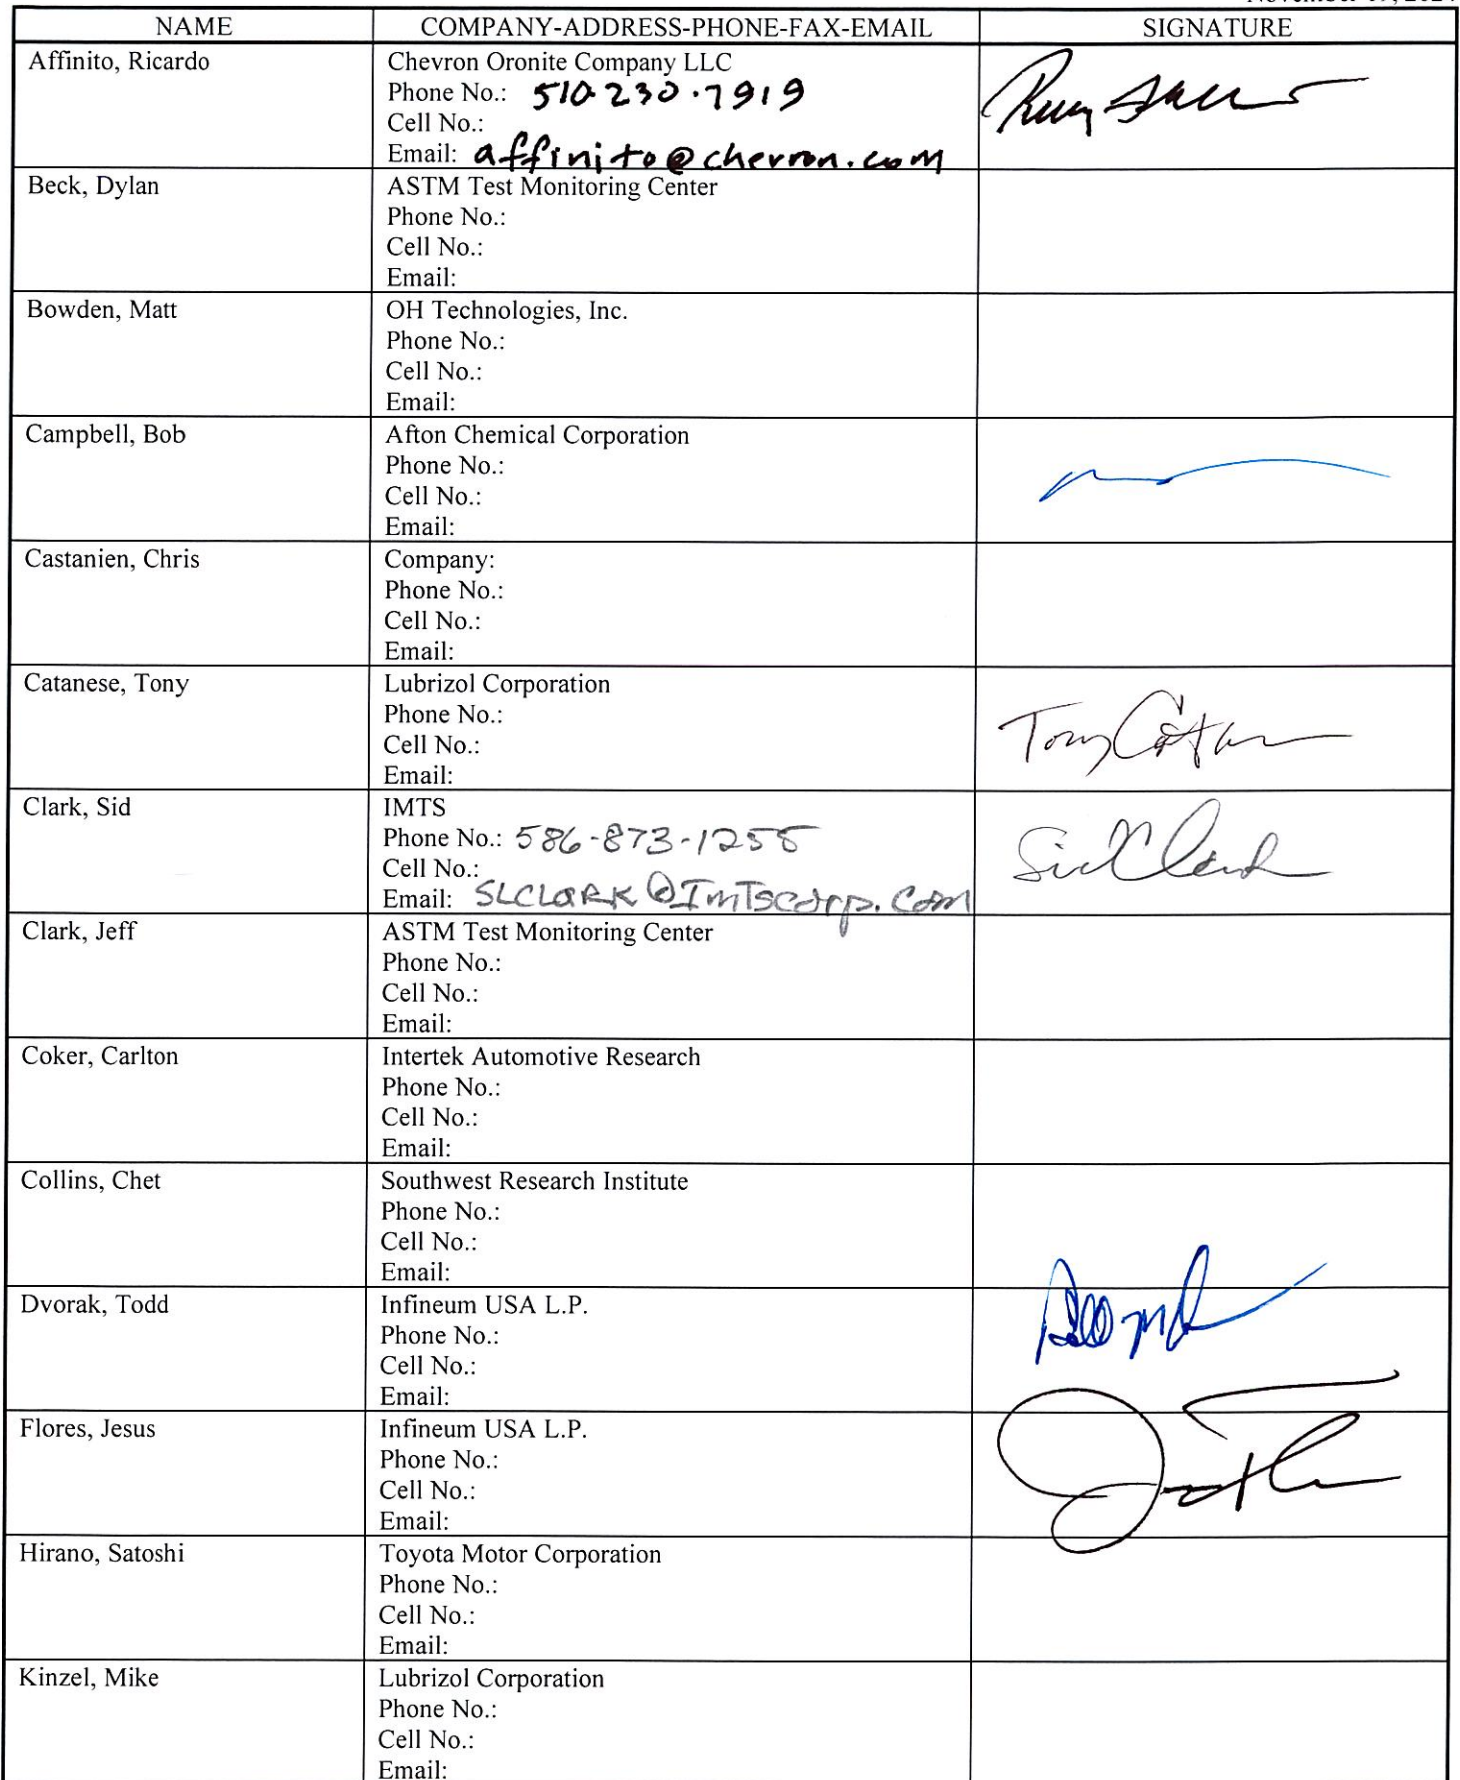 NAME COMPANY-ADDRESS-PHONE-FAX-EMAIL SIGNATURE
Affinito, Ricardo
Chevron Oronite Company LLC
Phone No.: 510.230.7919
Cell No.:
Email: affinito@chevron.com
Beck, Dylan
ASTM Test Monitoring Center
Phone No.:
Cell No.:
Email:
Bowden, Matt
OH Technologies, Inc.
Phone No.:
Cell No.:
Email:
Campbell, Bob
Afton Chemical Corporation
Phone No.:
Cell No.:
Email:
Castanien, Chris
Company:
Phone No.:
Cell No.:
Email:
Catanese, Tony
Lubrizol Corporation
Phone No.:
Cell No.:
Email:
Tony
Clark, Sid
IMTS
Phone No.: 586-873-1255
Cell No.:
Email: SLCLARK@ImTscorp.com
Sid Clark
Clark, Jeff
ASTM Test Monitoring Center
Phone No.:
Cell No.:
Email:
Coker, Carlton
Intertek Automotive Research
Phone No.:
Cell No.:
Email:
Collins, Chet
Southwest Research Institute
Phone No.:
Cell No.:
Email:
Dvorak, Todd
Infineum USA L.P.
Phone No.:
Cell No.:
Email:
Flores, Jesus
Infineum USA L.P.
Phone No.:
Cell No.:
Email:
Hirano, Satoshi
Toyota Motor Corporation
Phone No.:
Cell No.:
Email:
Kinzel, Mike
Lubrizol Corporation
Phone No.:
Cell No.:
Email: